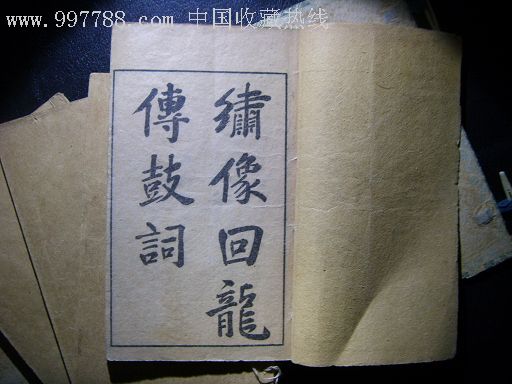 www.997788.com 中国收藏热线
繡像回龍
傳鼓詞